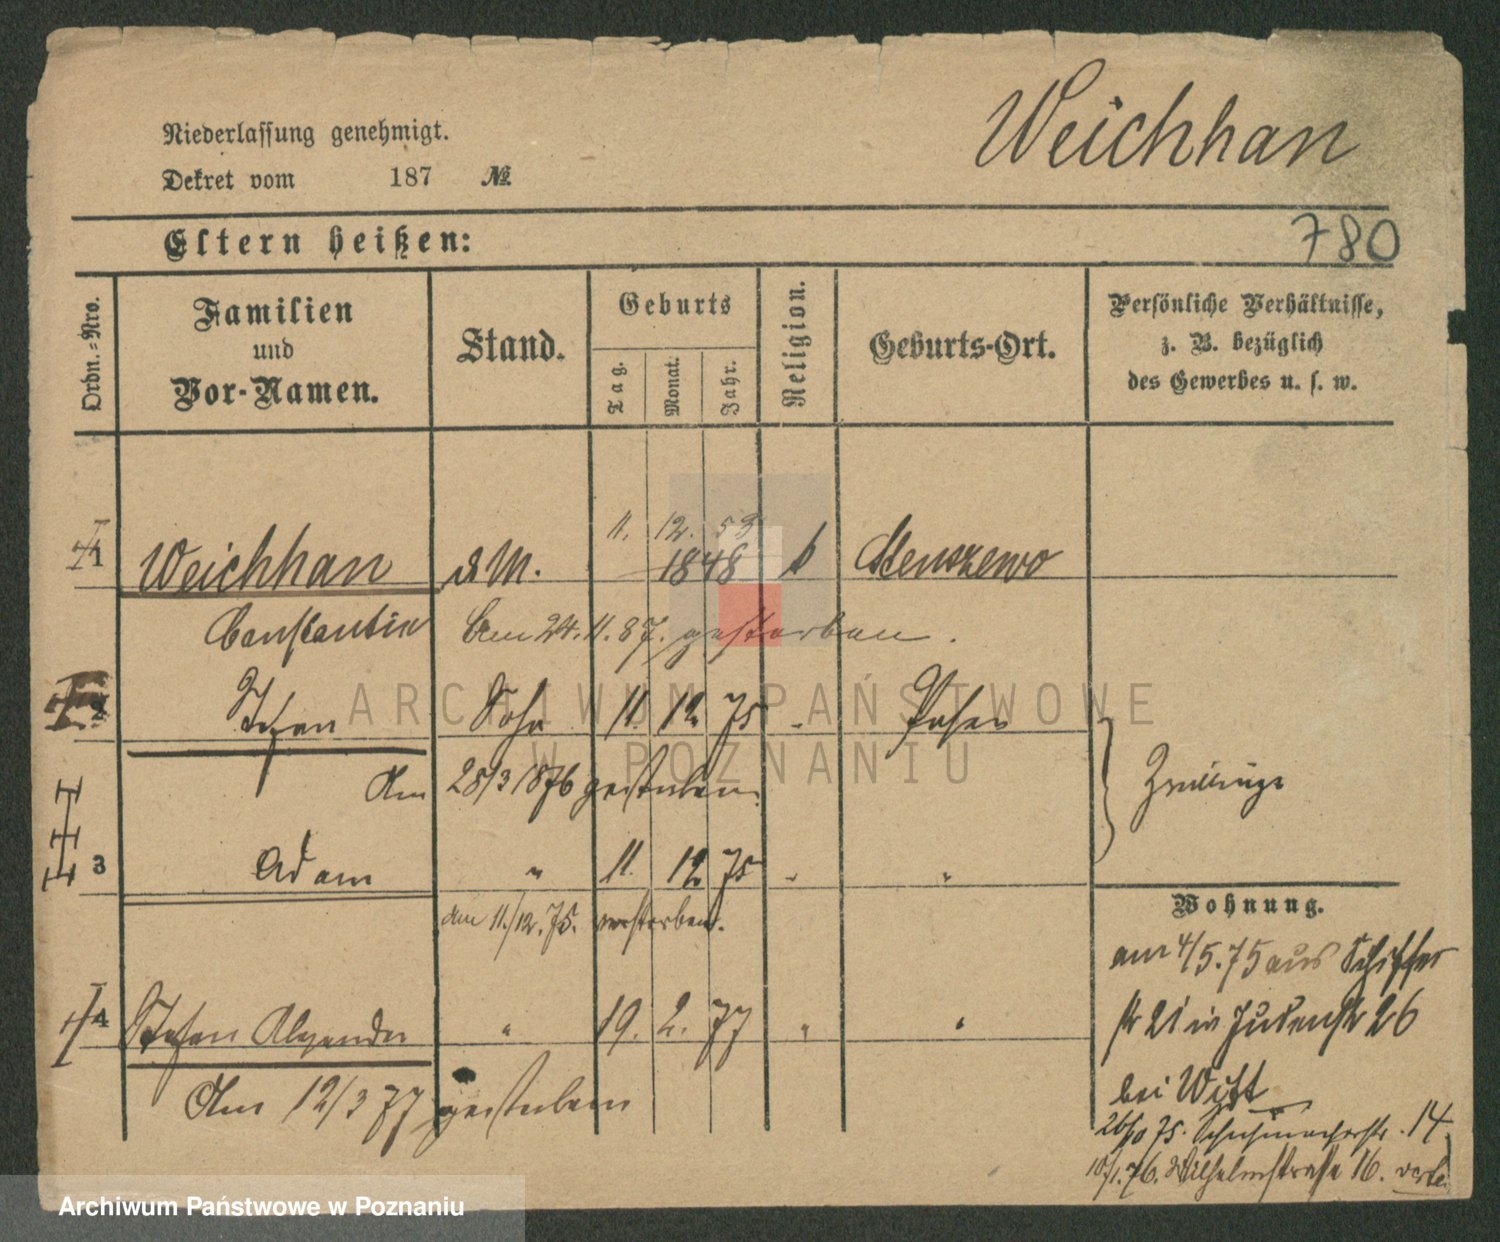 Weichhan
Niederlassung genehmigt.
Dekret vom 187 №
780
Eltern heißen:
Ordn.-Nro.
Familien
und
Vor-Namen.
Stand.
Geburts
Tag.
Monat.
Jahr.
Religion.
Geburts-Ort.
Persönliche Verhältnisse,
z. B. bezüglich
des Gewerbes u. s. w.
11. 12. 53
1 Weichhan 1848
Constantin Am 24. 11. 87. gestorben.
2 Stefan Sohn 11. 12. 75 Posen
Am 28/3 1876 gestorben.
Zwillinge
3 Adam " 11. 12. 75 " "
am 11./12. 75. verstorben.
4 Stefan Alexander " 19. 2. 77 " "
Am 12/3 77 gestorben
Wohnung.
am 4/5. 75 aus Schiffer
str 21 in Judenstr 26
bei Witt
75. Schuhmacherstr. 14.
10/1. 76. Wilhelmstraße 16.
ARCHIWUM PAŃSTWOWE
W POZNANIU
Archiwum Państwowe w Poznaniu